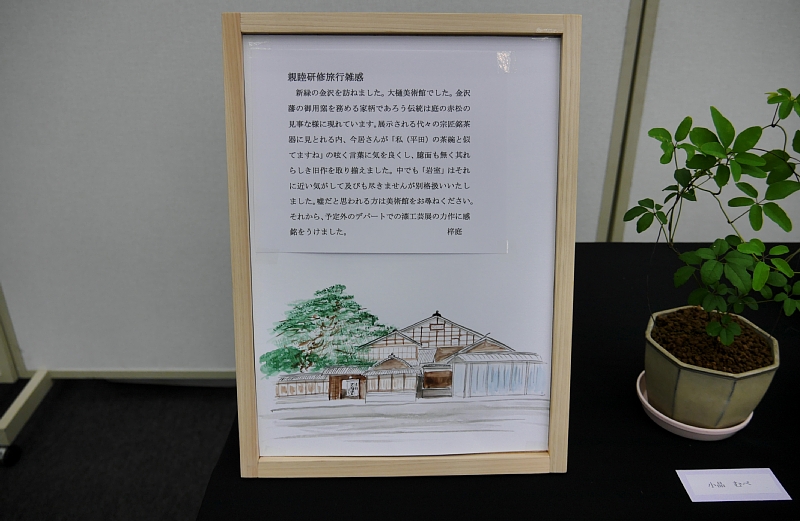 親睦研修旅行雑感
新緑の金沢を訪ねました。大樋美術館でした。金沢
藩の御用窯を務める家柄であろう伝統は庭の赤松の
見事な様に現れています。展示される代々の宗匠銘茶
器に見とれる内、今居さんが「私（平田）の茶碗と似
てますね」の呟く言葉に気を良くし、臆面も無く其れ
らしき旧作を取り揃えました。中でも「岩室」はそれ
に近い気がして及びも尽きませんが別格扱いいたし
ました。嘘だと思われる方は美術館をお尋ねください。
それから、予定外のデパートでの漆工芸展の力作に感
銘をうけました。 梓庭
小品 むべ